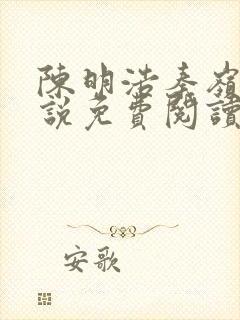 陳明浩秦嶺
說免費閱讀
安歌